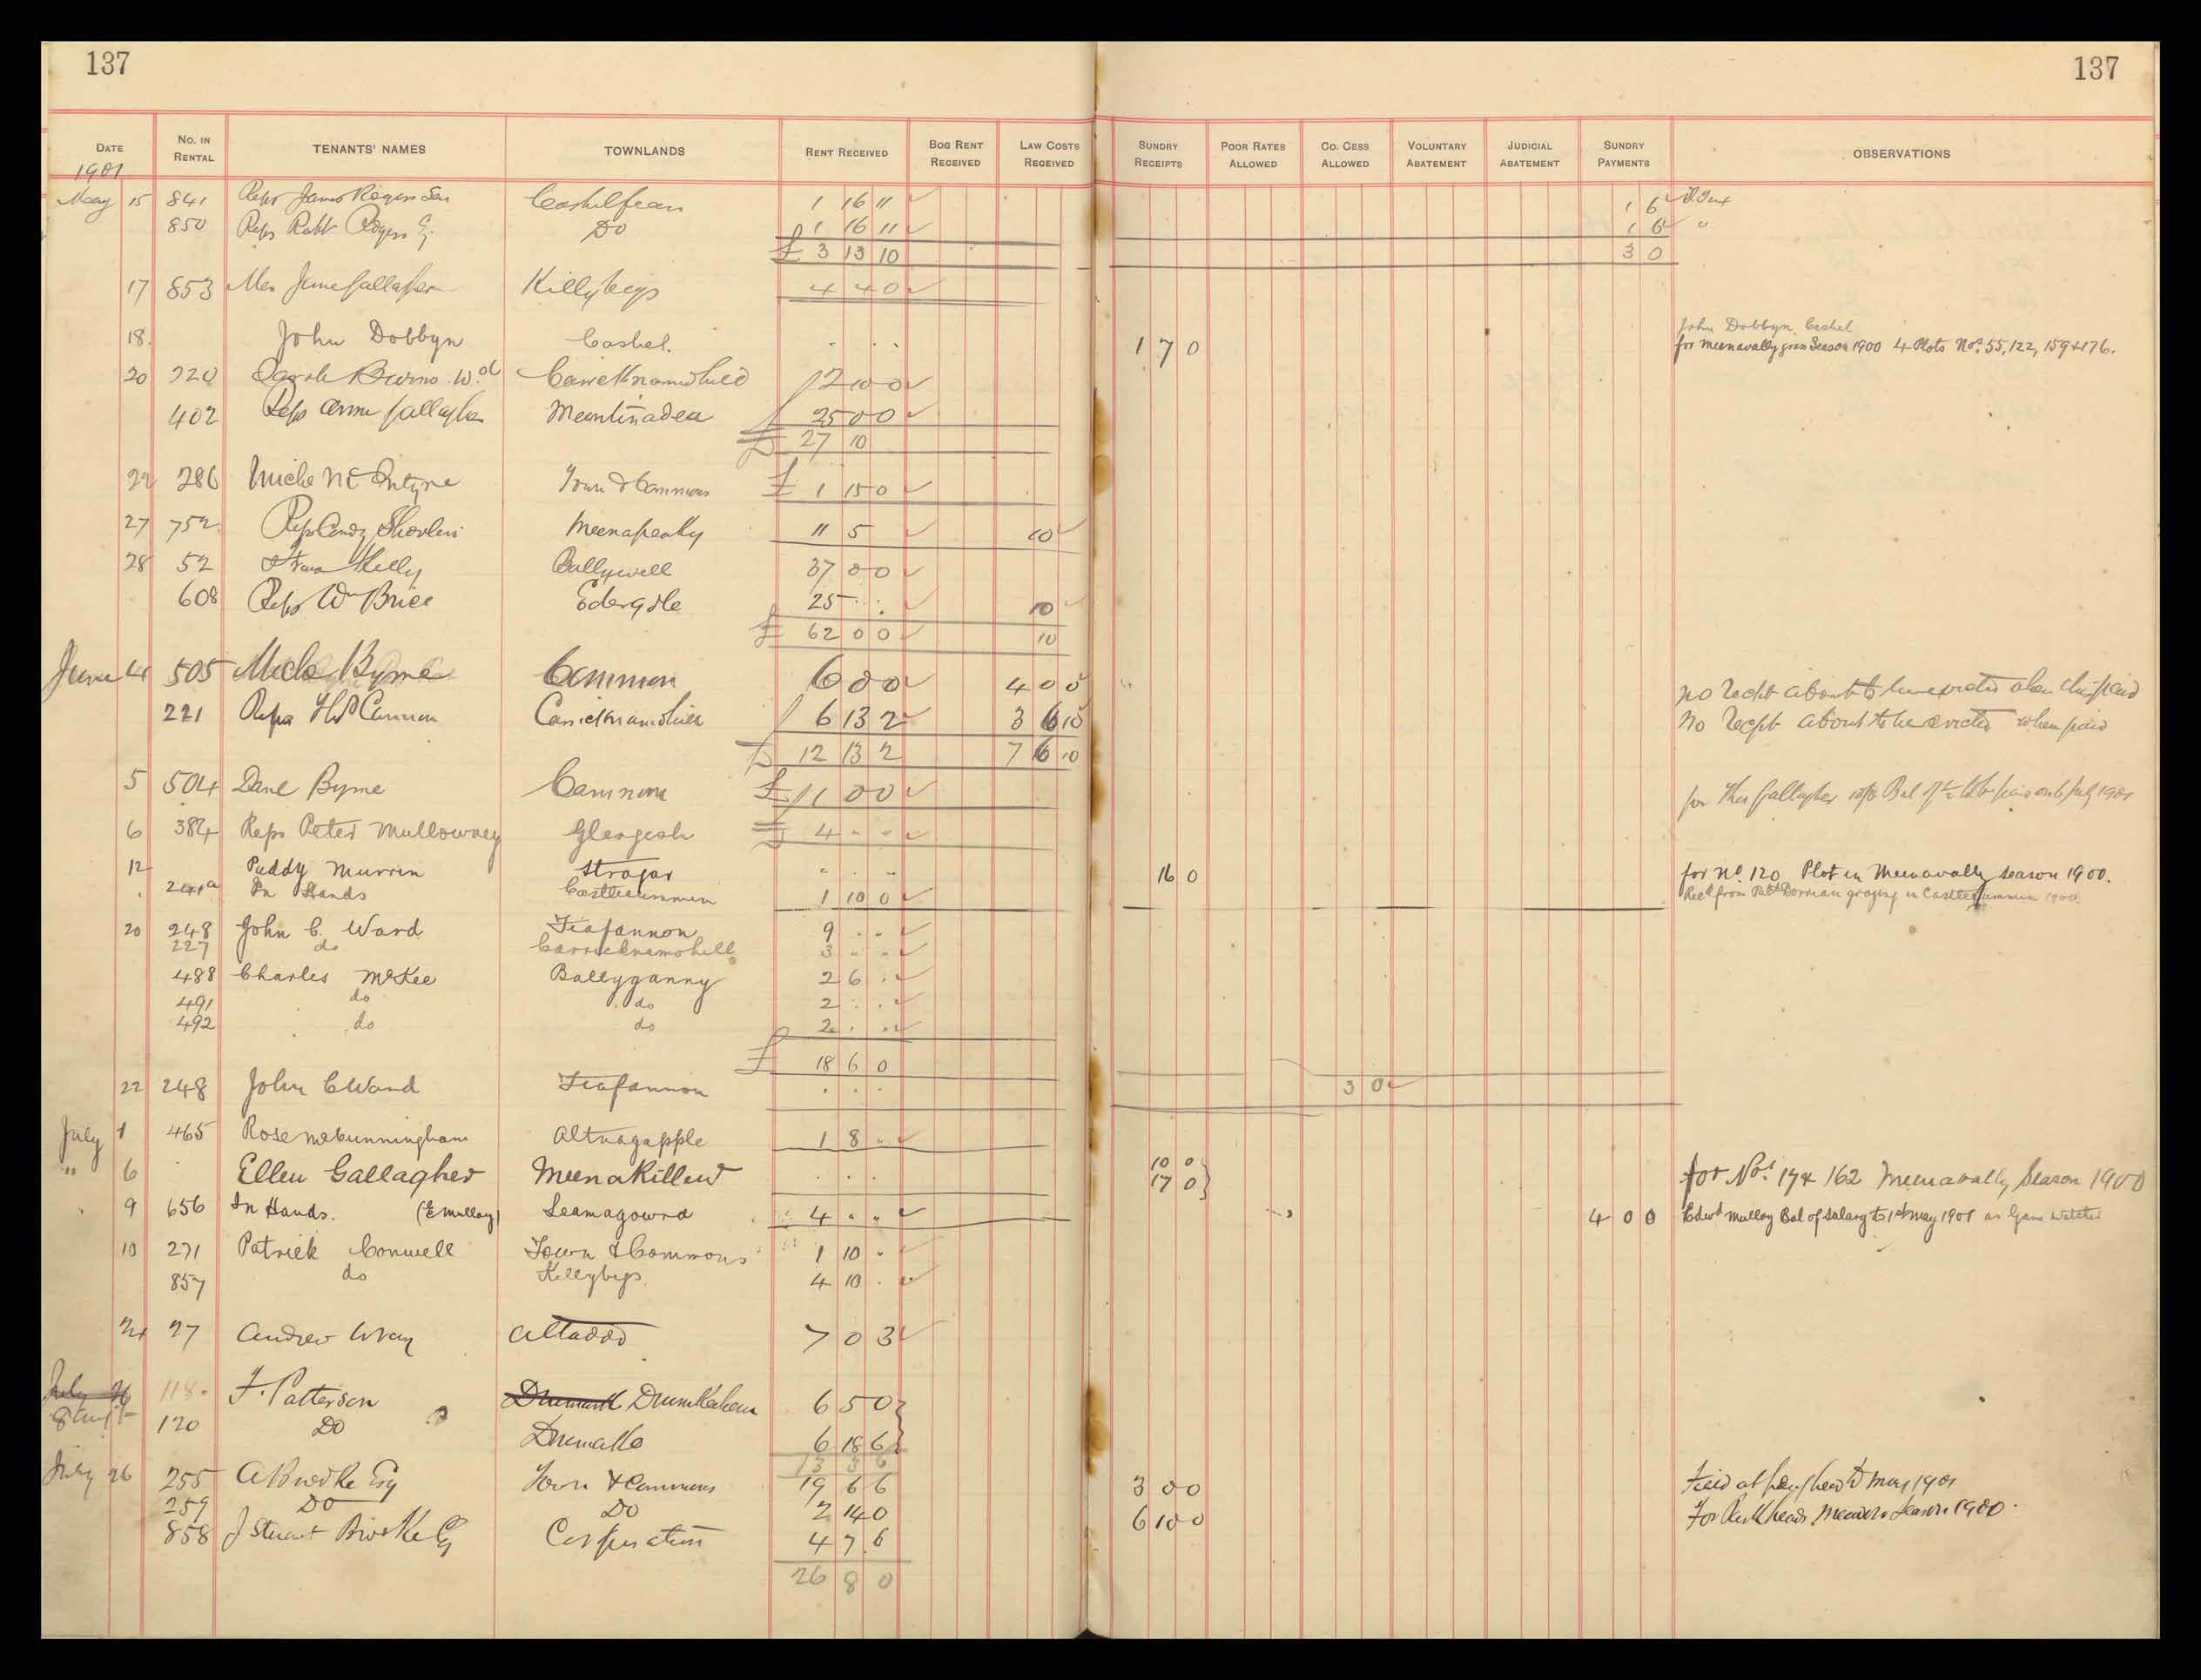 137 137
DATE NO. IN RENTAL TENANTS' NAMES TOWNLANDS RENT RECEIVED BOG RENT RECEIVED LAW COSTS RECEIVED SUNDRY RECEIPTS POOR RATES ALLOWED CO. CESS ALLOWED VOLUNTARY ABATEMENT JUDICIAL ABATEMENT SUNDRY PAYMENTS OBSERVATIONS
1901
May 15 841 Reps James Rogers Sen Cashelfean 1 16 11 1 6
850 Reps Robt Rogers Do 1 16 11 1 6 "
£ 3 13 10 3 0
17 853 Mrs Jane Gallagher Killybegs 4 4 0
18. John Dobbyn Cashel. . . . 1 7 0 John Dobbyn Cashel
for Meenavally grass Season 1900 4 Plots Nos. 55, 122, 159 & 176.
20 220 Sarah Burns Wid Carricknamohill 2 10 0
402 Reps Anne Gallagher Meentinadea 25 0 0
£ 27 10
22 286 Miche McIntyre Town & Commons £ 1 15 0
27 752 Reps Condy Shovlin Meenapeaky 11 5 10
28 52 Kelly Ballywell 37 0 0
608 Reps Wm Brice Edergole 25 . . 10
£ 62 0 0 10
June 4 505 Mick Byrne Common 6 0 0 4 0 0 no Recpt about to be evicted when paid
221 Reps Cannon Carricknamohill 6 13 2 3 6 10 No Recpt about to be evicted when paid
£ 12 13 2 7 6 10
5 504 Danl Byrne Common £ 11 0 0 for Gallagher Bal of paid on 6 July 1901
6 384 Reps Peter Mullowney Glengesh £ 4 - -
12 Paddy Murrin Stragar " . .. 16 0 for No. 120 Plot in Meenavally season 1900.
. 241a In Hands Castlecummin 1 10 0 Recd from Patk Dorrian grazing in Castlecummin 1900.
20 248 John C. Ward Fiafannon 9 . .
227 do Carricknamohill 3 " "
488 Charles McKee Ballyganny 2 6 .
491 do do 2 . .
492 do do 2 . .
£ 18 6 0
22 248 John C Ward Fiafannon . . . 3 0
July 1 465 Rose McCunningham Altnagapple 1 8 "
" 6 . Ellen Gallagher Meenakillew . . . 10 0
17 0 } for Nos. 17 & 162 Meenavally Season 1900
9 656 In Hands. (E Mulloy) Leamagowra 4 " " 4 0 0 Edwd Mulloy Bal of Salary to 1st May 1901 as Game Watcher
10 271 Patrick Conwell Town & Commons 1 10 "
857 do Killybegs 4 10 .
24 27 Andrew Wray Altadoo 7 0 3
July 26 118. F. Patterson Drumkahem 6 5 0 }
8 Augt 120 Do 6 18 6 }
13 3 6
July 26 255 A Brooke Esq Town & Commons 19 6 6 3 0 0 Field at May 1901
259 Do Do 2 14 0 6 10 0 For Meadow Season 1900.
858 J Stuart Brooke Corporation 4 7 6
26 8 0